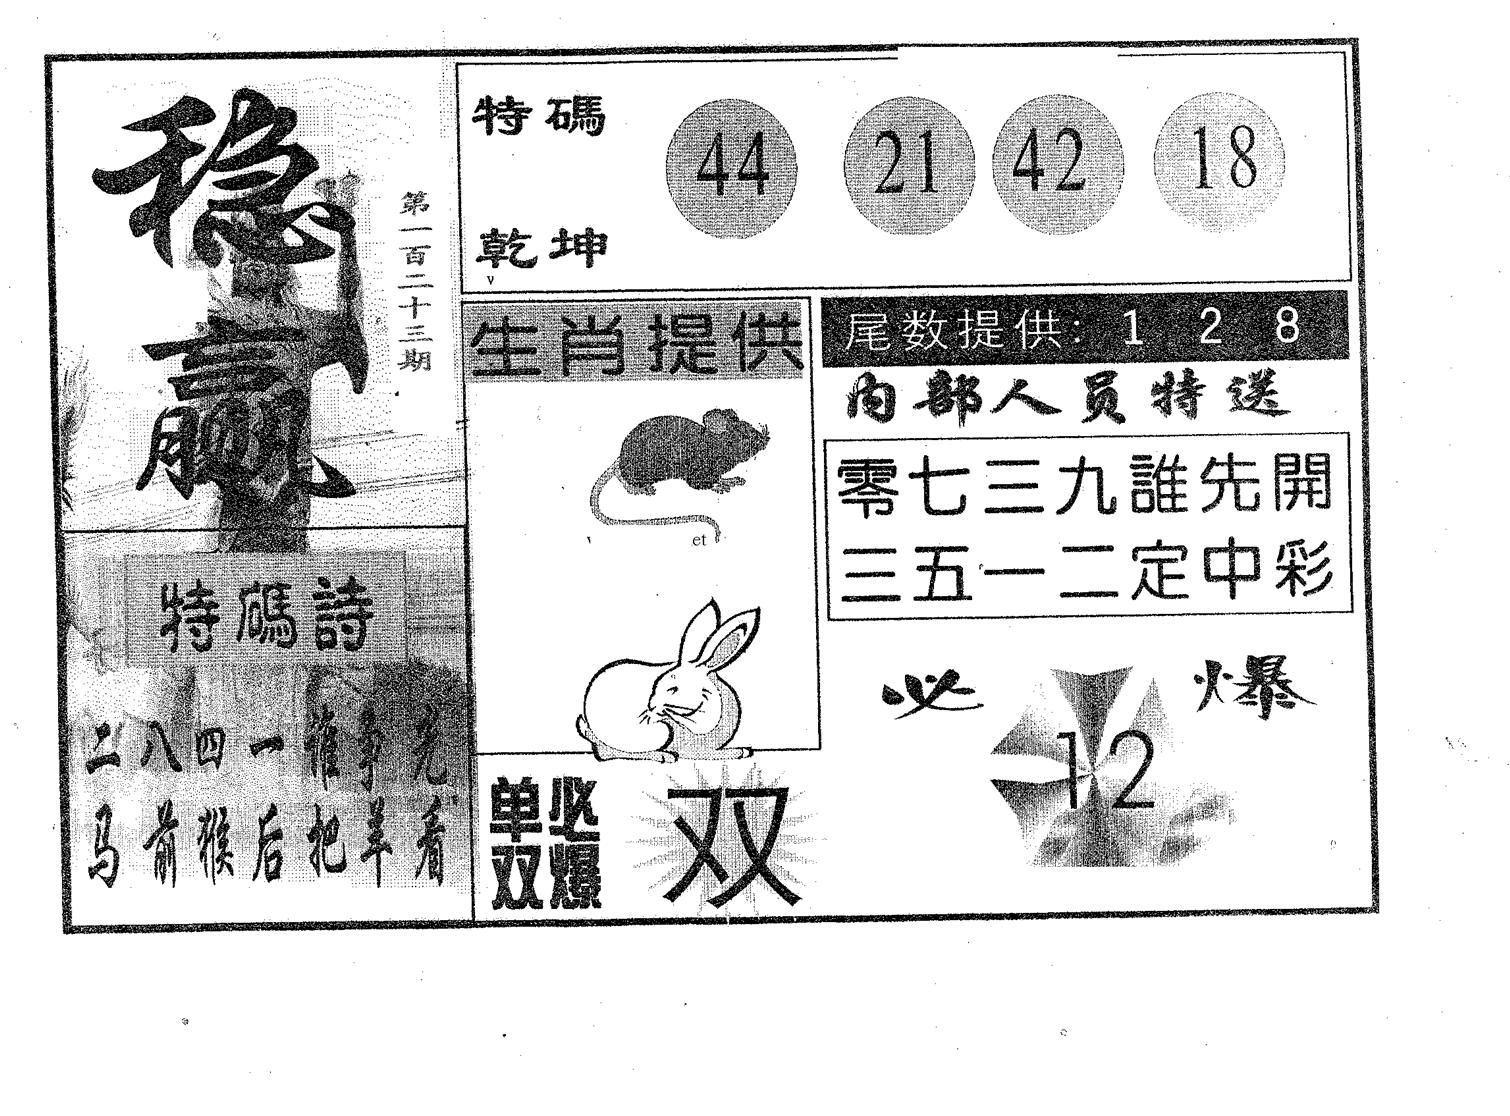 稳赢
第一百二十三期
特碼
乾坤
44 21 42 18
生肖提供
et
尾数提供: 1 2 8
内部人员特送
零七三九誰先開
三五一二定中彩
特碼詩
二八四一谁争先
马前猴后把羊看
单双
必爆
双
必爆
12